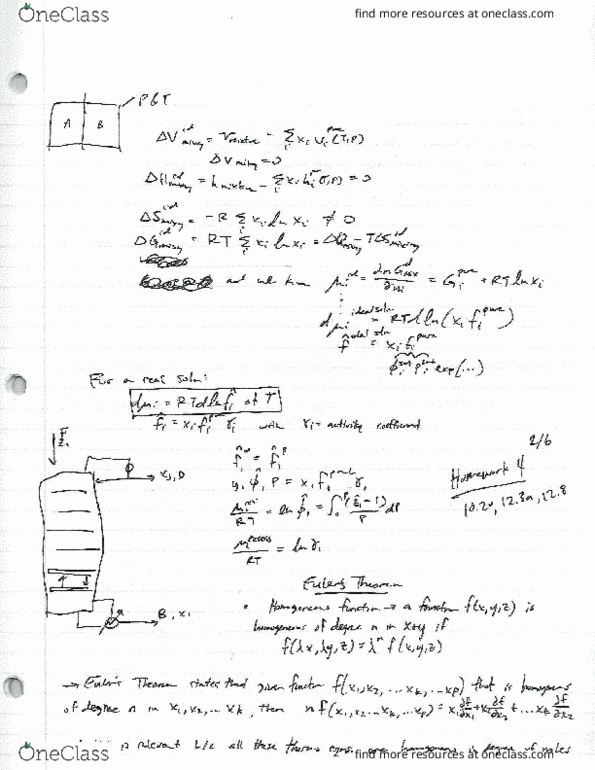 OneClass
find more resources at oneclass.com
P&T
A B
ΔV^id_mixing = V_mixture - Σ_i x_i v_i^pure (T,P)
ΔV_mixing = 0
ΔH^id_mixing = h_mixture - Σ_i x_i h_i^pure (T,P) = 0
ΔS^id_mixing = -R Σ_i x_i ln x_i ≠ 0
ΔG^id_mixing = RT Σ_i x_i ln x_i = ΔH_mixing - TΔS^id_mixing
and we know μ_i^id = = G_i^pure + RT ln x_i
dμ_i^ideal soln = RT d ln(x_i f_i^pure)
f̂^ideal soln = x_i f_i^pure
φ_i^sat P_i^sat exp(...)
For a real soln:
dμ_i = RT d ln f̂_i at T
f̂_i = x_i f_i^pure γ_i with γ_i = activity coefficient
F
z_i
x_D, D
B, x_i
2/6
Homework 4
10.20, 12.3a, 12.8
y_i φ̂_i P = x_i f_i^pure γ_i
/RT = ln φ̂_i = ∫_0^P (z̄_i - 1)/P dP
μ^excess/RT = ln γ_i
Euler's Theorem
• Homogeneous function → a function f(x,y,z) is
homogeneous of degree n in x+y if
f(λx, λy, z) = λ^n f(x,y,z)
→ Euler's Theorem states that given function f(x_1, x_2, ... x_k, ... x_p) that is homogeneous
of degree n in x_1, x_2, ... x_k, then n f(x_1, x_2 ... x_k, ... x_p) = x_1 ∂f/∂x_1 + x_2 ∂f/∂x_2 + ... x_k ∂f/∂x_2
is relevant b/c all these thermo eqns are homogeneous in degree of moles
OneClass
find more resources at oneclass.com